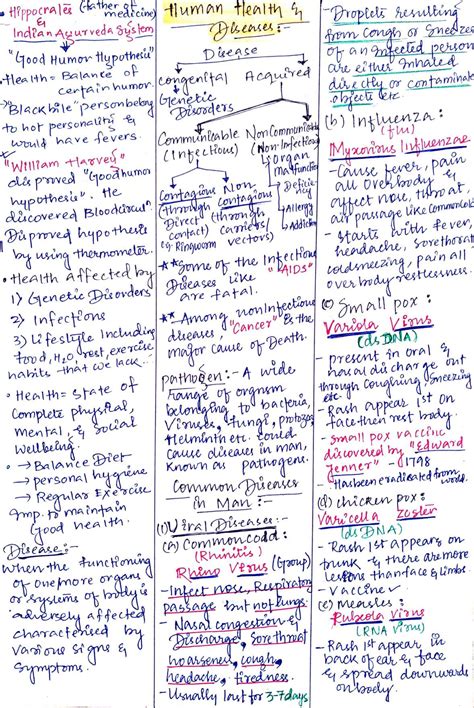 Hippocrates (father of
medicine)
&
Indian Ayurveda System
"Good Humor Hypothesis"
• Health = Balance of
certain humor.
→ "Black bile" person belong
to hot personality &
would have fevers.
"William Harvey"
disproved "Good humor
hypothesis". He
discovered Blood circulⁿ
Disproved hypothesis
by using thermometer.
• Health affected by
1) Genetic Disorders
2) Infections
3) Lifestyle Including
Food, H₂O, rest, exercise
habits - that we lack.
• Health = State of
Complete physical,
mental, & Social
Wellbeing.
• → Balance Diet
→ personal hygiene
→ Regular Exercise
Imp. to maintain
Good health.
Disease:-
When the functioning
of one/more organs
or systems of body is
adversely affected
characterised by
various signs &
Symptoms.
Human Health &
Diseases:-
Disease
Congenital Acquired
↓
Genetic
Disorders
Communicable Non Communicable
(Infectious) (Non-Infectious)
→ organ
malfunction
→ Deficiency
→ Allergy
→ Addiction
Contagious Non-
(through contagious
Direct (through
contact) carriers/
eg Ringworm vectors)
** Some of the Infectious
Diseases like "AIDS"
are fatal.
** Among nonInfectious
diseases, "Cancer" is the
major cause of Death.
pathogen:- A wide
range of orgnism
belonging to bacteria,
Viruses, fungi, protozoa,
Helminth etc. could
cause diseases in man,
Known as pathogene.
Common Diseases
in Man:-
(1) Viral Diseases:-
(a) Common cold:
(Rhinitis)
Rhino Virus (Group)
- Infect nose, Respiratory
passage but not lungs.
- Nasal congestion &
Discharge, sore throat
hoarseness, cough,
headache, tiredness.
- Usually last for 3-7 days
- Droplets resulting
from Cough or Sneezes
of an Infected person
are either Inhaled
directly or contaminate
objects etc.
(b) Influenza:
(flu)
Myxovirus Influenzae
- Cause fever, pain
all over body &
affect nose, throat,
air passage like common cold
- Starts with fever,
headache, sore throat
cold sneezing, pain all
over body restlessness.
(c) Small pox:
Variola Virus
(dsDNA)
- present in oral &
nasal discharge out
through Coughing, Sneezing
etc
- Rash appear 1st on
face then rest body.
- small pox vaccine
discovered by "Edward
Jenner" - 1798
- Has been eradicated from world.
(d) chicken pox:
Varicella Zoster
(dsDNA)
- Rash 1st appears on
trunk & there are more
lesions than face & limbs.
- Vaccine ✓
(e) Measles:
Rubeola Virus
(RNA virus)
- Rash 1st appear in
back of ear & face
& spread downwards
on body.